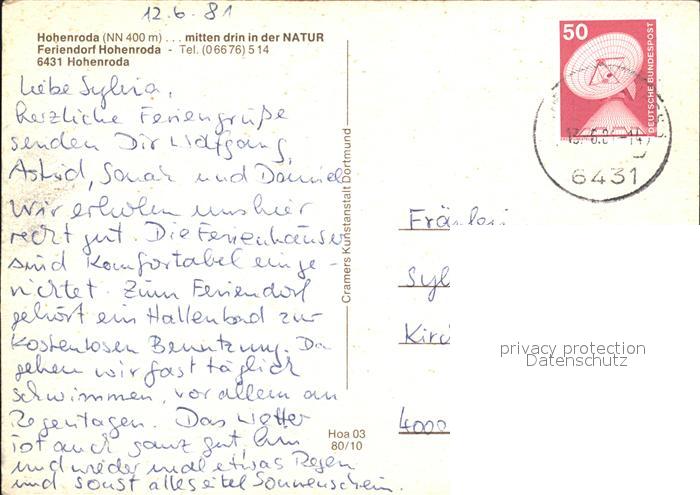 12.6.81
Hohenroda (NN 400 m) . . . mitten drin in der NATUR
Feriendorf Hohenroda - Tel. (0 66 76) 5 14
6431 Hohenroda
Liebe Sylvia,
herzliche Feriengrüße
senden Dir Wolfgang,
Astrid, Sonja und Daniel
Wir erholen uns hier
recht gut. Die Ferienhäuser
sind komfortabel einge-
richtet. Zum Feriendorf
gehört ein Hallenbad zur
kostenlosen Benutzung. Da
gehen wir fast täglich
schwimmen, vor allem an
Regentagen. Das Wetter
ist auch ganz gut, hin
und wieder mal etwas Regen
und sonst alles eitel Sonnenschein.
Cramers Kunstanstalt Dortmund
Hoa 03
80/10
50
DEUTSCHE BUNDESPOST
13.6.81-14
6431
Fräulei
Syl
Kirc
4000
privacy protection
Datenschutz